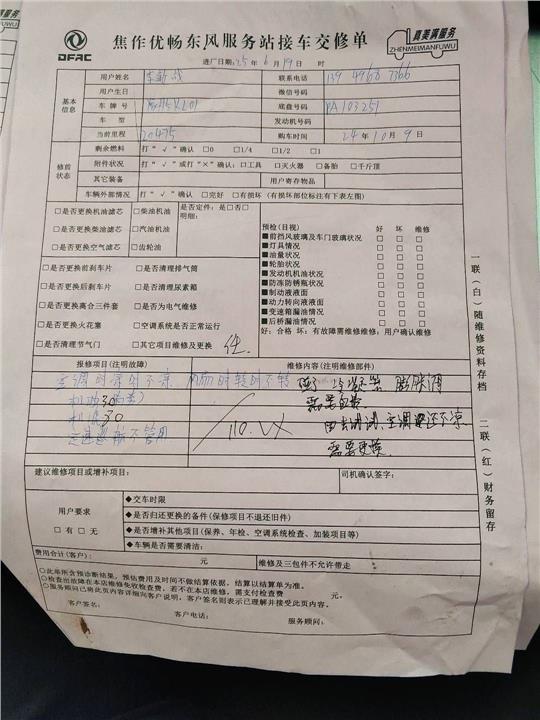 DFAC
焦作优畅东风服务站接车交修单
真美满服务
ZHENMEIMANFUWU
进厂日期:25年6月19日 时
基本信息
用户姓名 联系电话 139 4968 7366
用户生日 微信号码
车牌号 底盘号码 PA103251
车型 发动机号
当前里程 20475 购车时间 24年10月9日
修前状态
剩余燃料 打"√"确认 □0 □1/4 □1/2 □1
附件状况 打"√"或打"×"确认:□工具 □灭火器 □备胎 □千斤顶
其它装备 用户寄存物品
车辆外部情况 打"√"确认 □完好 □有损坏(有损坏部位标注有下表左图)
□是否更换机油滤芯 □柴油机油 是否定件:是□否□
明细:
□是否更换柴油滤芯 □汽油机油
□是否更换空气滤芯 □齿轮油
□是否更换前刹车片 □是否清理排气筒
□是否更换后刹车片 □是否清理尿素箱
□是否更换离合三件套 □是否为电气维修
□是否更换火花塞 □空调系统是否正常运行
□是否清理节气门 □其它项目维修及更换
预检(目视) 好 坏 维修
■前挡风玻璃及车门玻璃状况 □ □ □
■灯具情况 □ □ □
■油量状况 □ □ □
■轮胎状况 □ □ □
■发动机机油状况 □ □ □
■防冻防锈瓶状况 □ □ □
■制动液液面 □ □ □
■动力转向液液面 □ □ □
■变速箱漏油情况 □ □ □
■后桥漏油情况 □ □ □
好:合格 坏:有故障需维修维修:用户确认维修
报修项目(注明故障) 维修内容(注明维修部件)
空调时凉时不凉 风扇时转时不转
机功30
机滤30
需要更换
空调还不凉
需要更换
建议维修项目或增补项目: 司机确认签字:
用户要求
□有 □无
◆交车时限
◆是否归还更换的备件(保修项目不退还旧件)
◆是否增补其他项目(保养、年检、空调系统检查、加装项目等)
◆车辆是否需要清洁:
费用合计(客户): 元 维修及三包件不允许带走
○此单所含预诊断结果,预估费用及时间不做结算依据,结算以结算单为准。
○检查出故障在本店维修免收检查费,若不在本店维修,需支付检查费 元。
○服务顾问已将此页内容详细向客户说明,客户签名则表示已理解并接受此页内容。
客户签名: 客户电话: 服务顾问:
一联(白)随维修资料存档
二联(红)财务留存